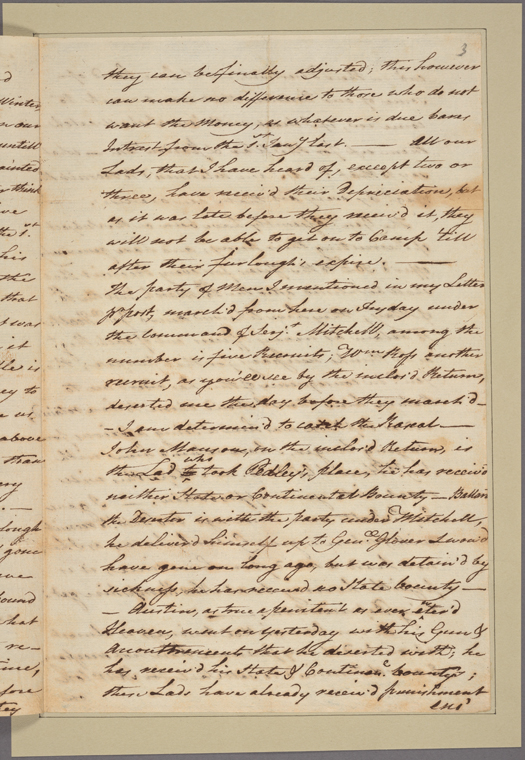 3
they can be finally adjusted; this however
can make no difference to those who do not
want the Money, as whatever is due bares
Intrest from the 1st Jany last. — All our
Lads, that I have heard of, except two or
three, have receiv'd their Depreciation, but
as it was late before they receiv'd it, they
will not be able to get on to Camp 'till
after their furlough's expire. —
The party of Men I mentioned in my Letter
pr post, march'd from here on Tusday under
the command of Serjt Mitchell, among the
number is five Recruits; Wm Ross another
recruit, as you'll see by the inclos'd Return,
deserted me the day before they march'd —
— I am determin'd to catch the Raskal —
John Manson, on the inclos'd Return, is
the Lad who took Pedley's, place, he has receiv'd
neither State or Continental Bounty — Ballon
the Deserter is with the party under Mitchell,
he deliver'd himself up to Genl Glover & wou'd
have gone on long ago, but was detain'd by
sickness, he has receiv'd no State bounty —
— Austin, as true a penitent as ever enter'd
Heaven, went on yesterday with his Gun &
Accoutrements that he deserted with; he
has receiv'd his State & Continenl bounty's;
these Lads have already receiv'd punishment
d
Winter
n our
untill
ointed
r think
ve
the 1st
his
the
that
t was
it
le is
ey to
e us
above
than
ry
lough
gone
ve
found
hat
re-
time,
fore
tey